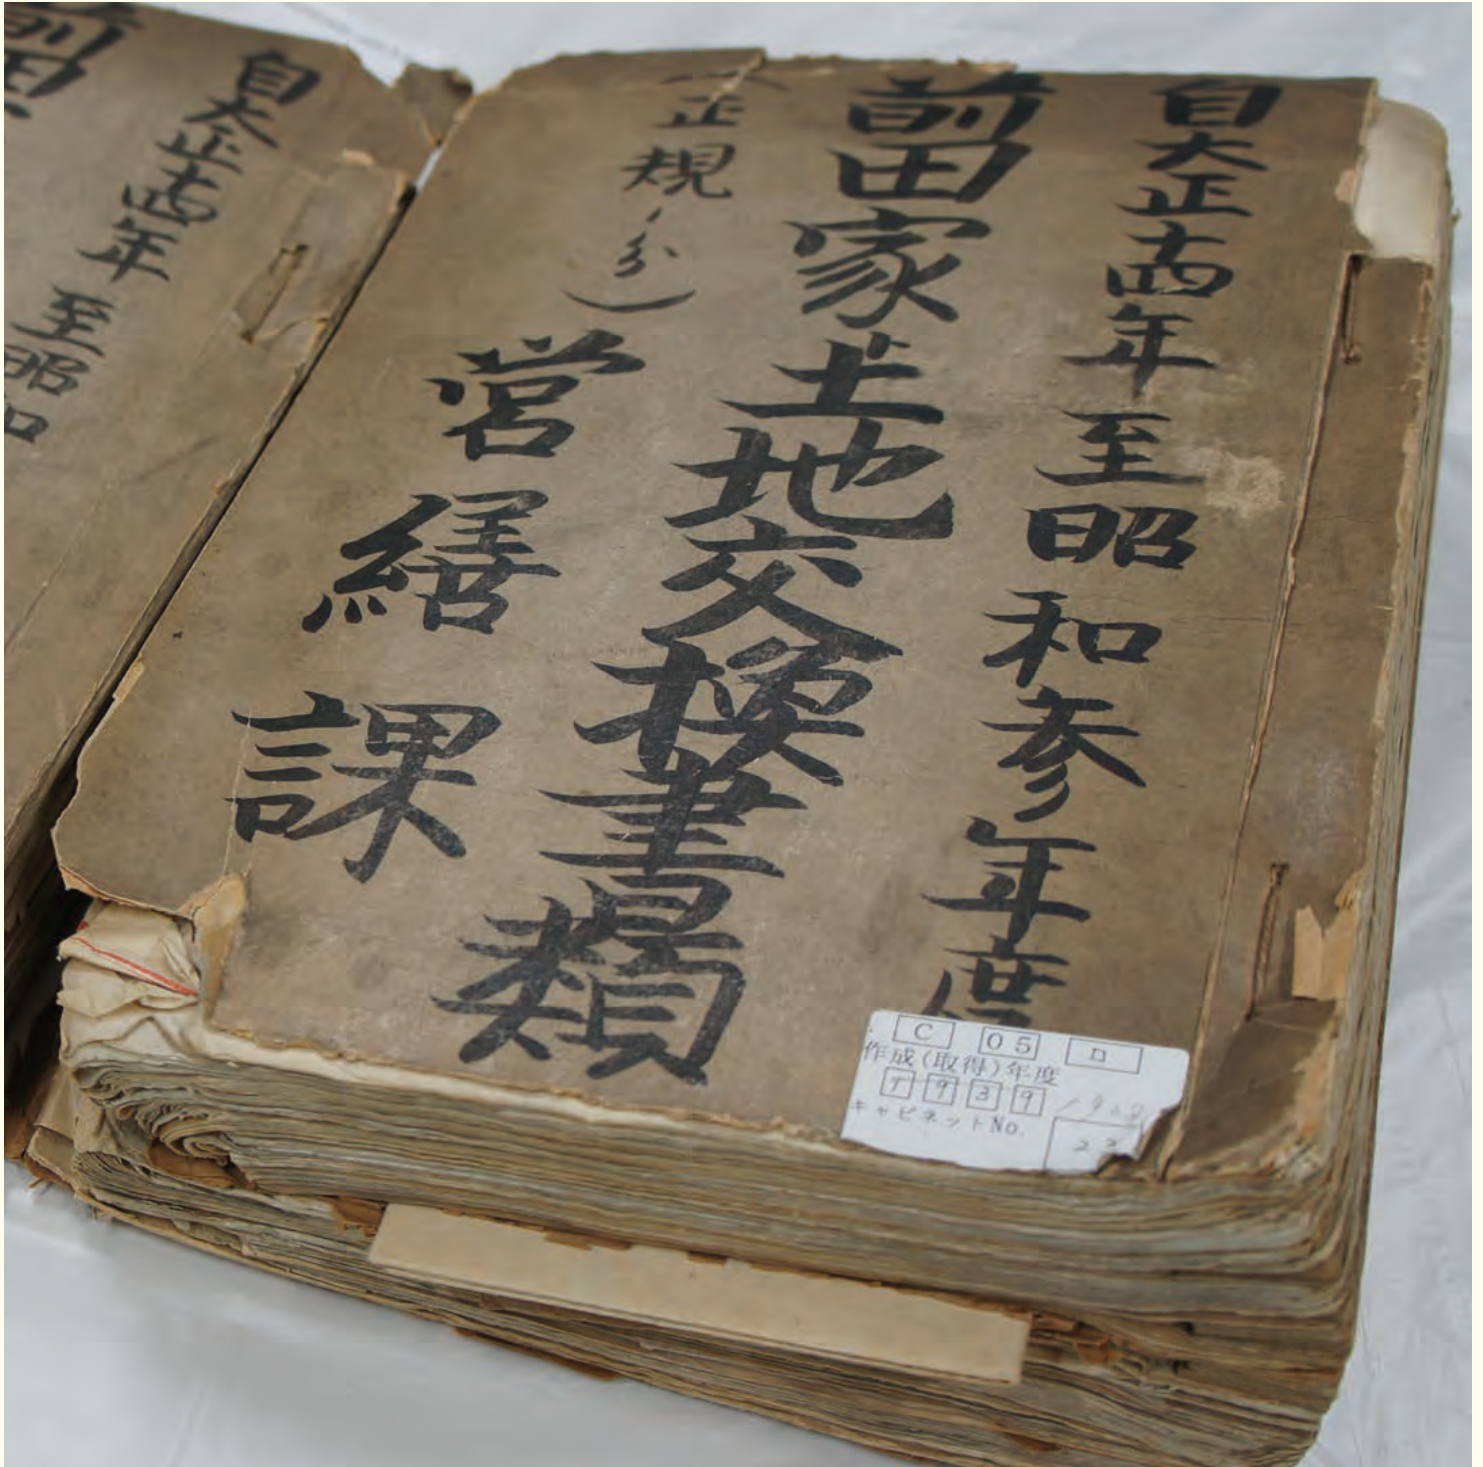 自大正十四年至昭和参年度
前田家土地交換書類
正規ノ分)
営繕課
C 05 ロ
作成(取得)年度
1939
キャビネットNo.
23
自大正十四年 至昭和
前田